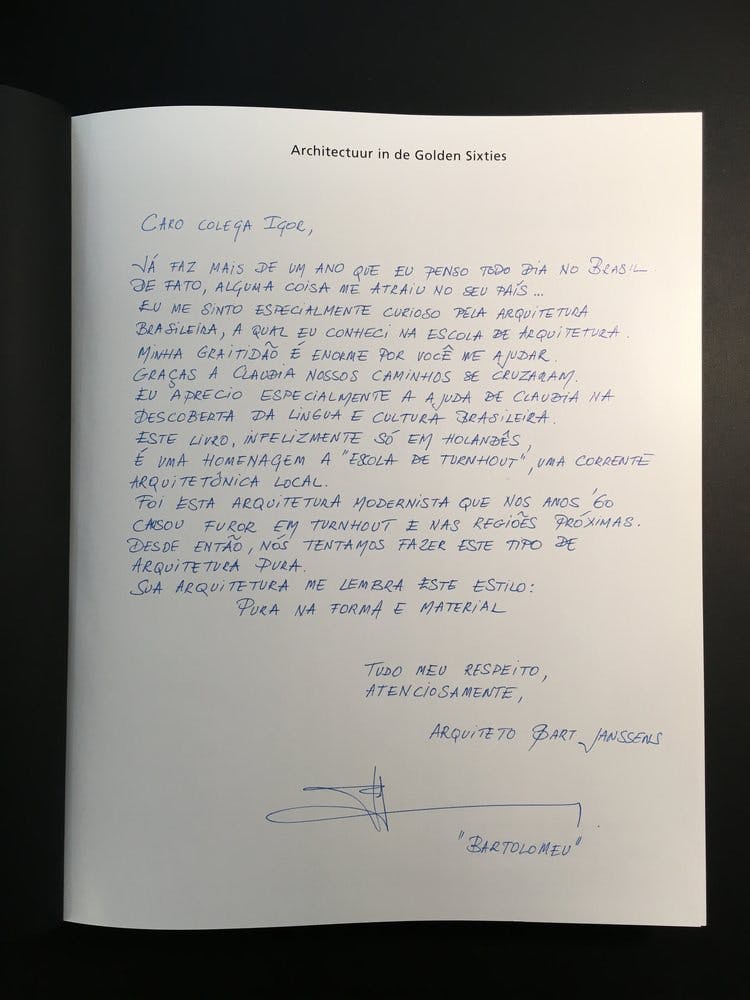 Architectuur in de Golden Sixties
CARO COLEGA IGOR,
JÁ FAZ MAIS DE UM ANO QUE EU PENSO TODO DIA NO BRASIL
DE FATO, ALGUMA COISA ME ATRAIU NO SEU PAÍS...
EU ME SINTO ESPECIALMENTE CURIOSO PELA ARQUITETURA
BRASILEIRA, A QUAL EU CONHECI NA ESCOLA DE ARQUITETURA.
MINHA GRAITIDÃO É ENORME POR VOCÊ ME AJUDAR.
GRAÇAS A CLAUDIA NOSSOS CAMINHOS SE CRUZARAM.
EU APRECIO ESPECIALMENTE A AJUDA DE CLAUDIA NA
DESCOBERTA DA LINGUA E CULTURA BRASILEIRA.
ESTE LIVRO, INFELIZMENTE SÓ EM HOLANDÊS,
É UMA HOMENAGEM A "ESCOLA DE TURNHOUT", UMA CORRENTE
ARQUITETÔNICA LOCAL.
FOI ESTA ARQUITETURA MODERNISTA QUE NOS ANOS '60
CAUSOU FUROR EM TURNHOUT E NAS REGIÕES PRÓXIMAS.
DESDE ENTÃO, NÓS TENTAMOS FAZER ESTE TIPO DE
ARQUITETURA PURA.
SUA ARQUITETURA ME LEMBRA ESTE ESTILO:
PURA NA FORMA E MATERIAL
TUDO MEU RESPEITO,
ATENCIOSAMENTE,
ARQUITETO BART JANSSENS
"BARTOLOMEU"